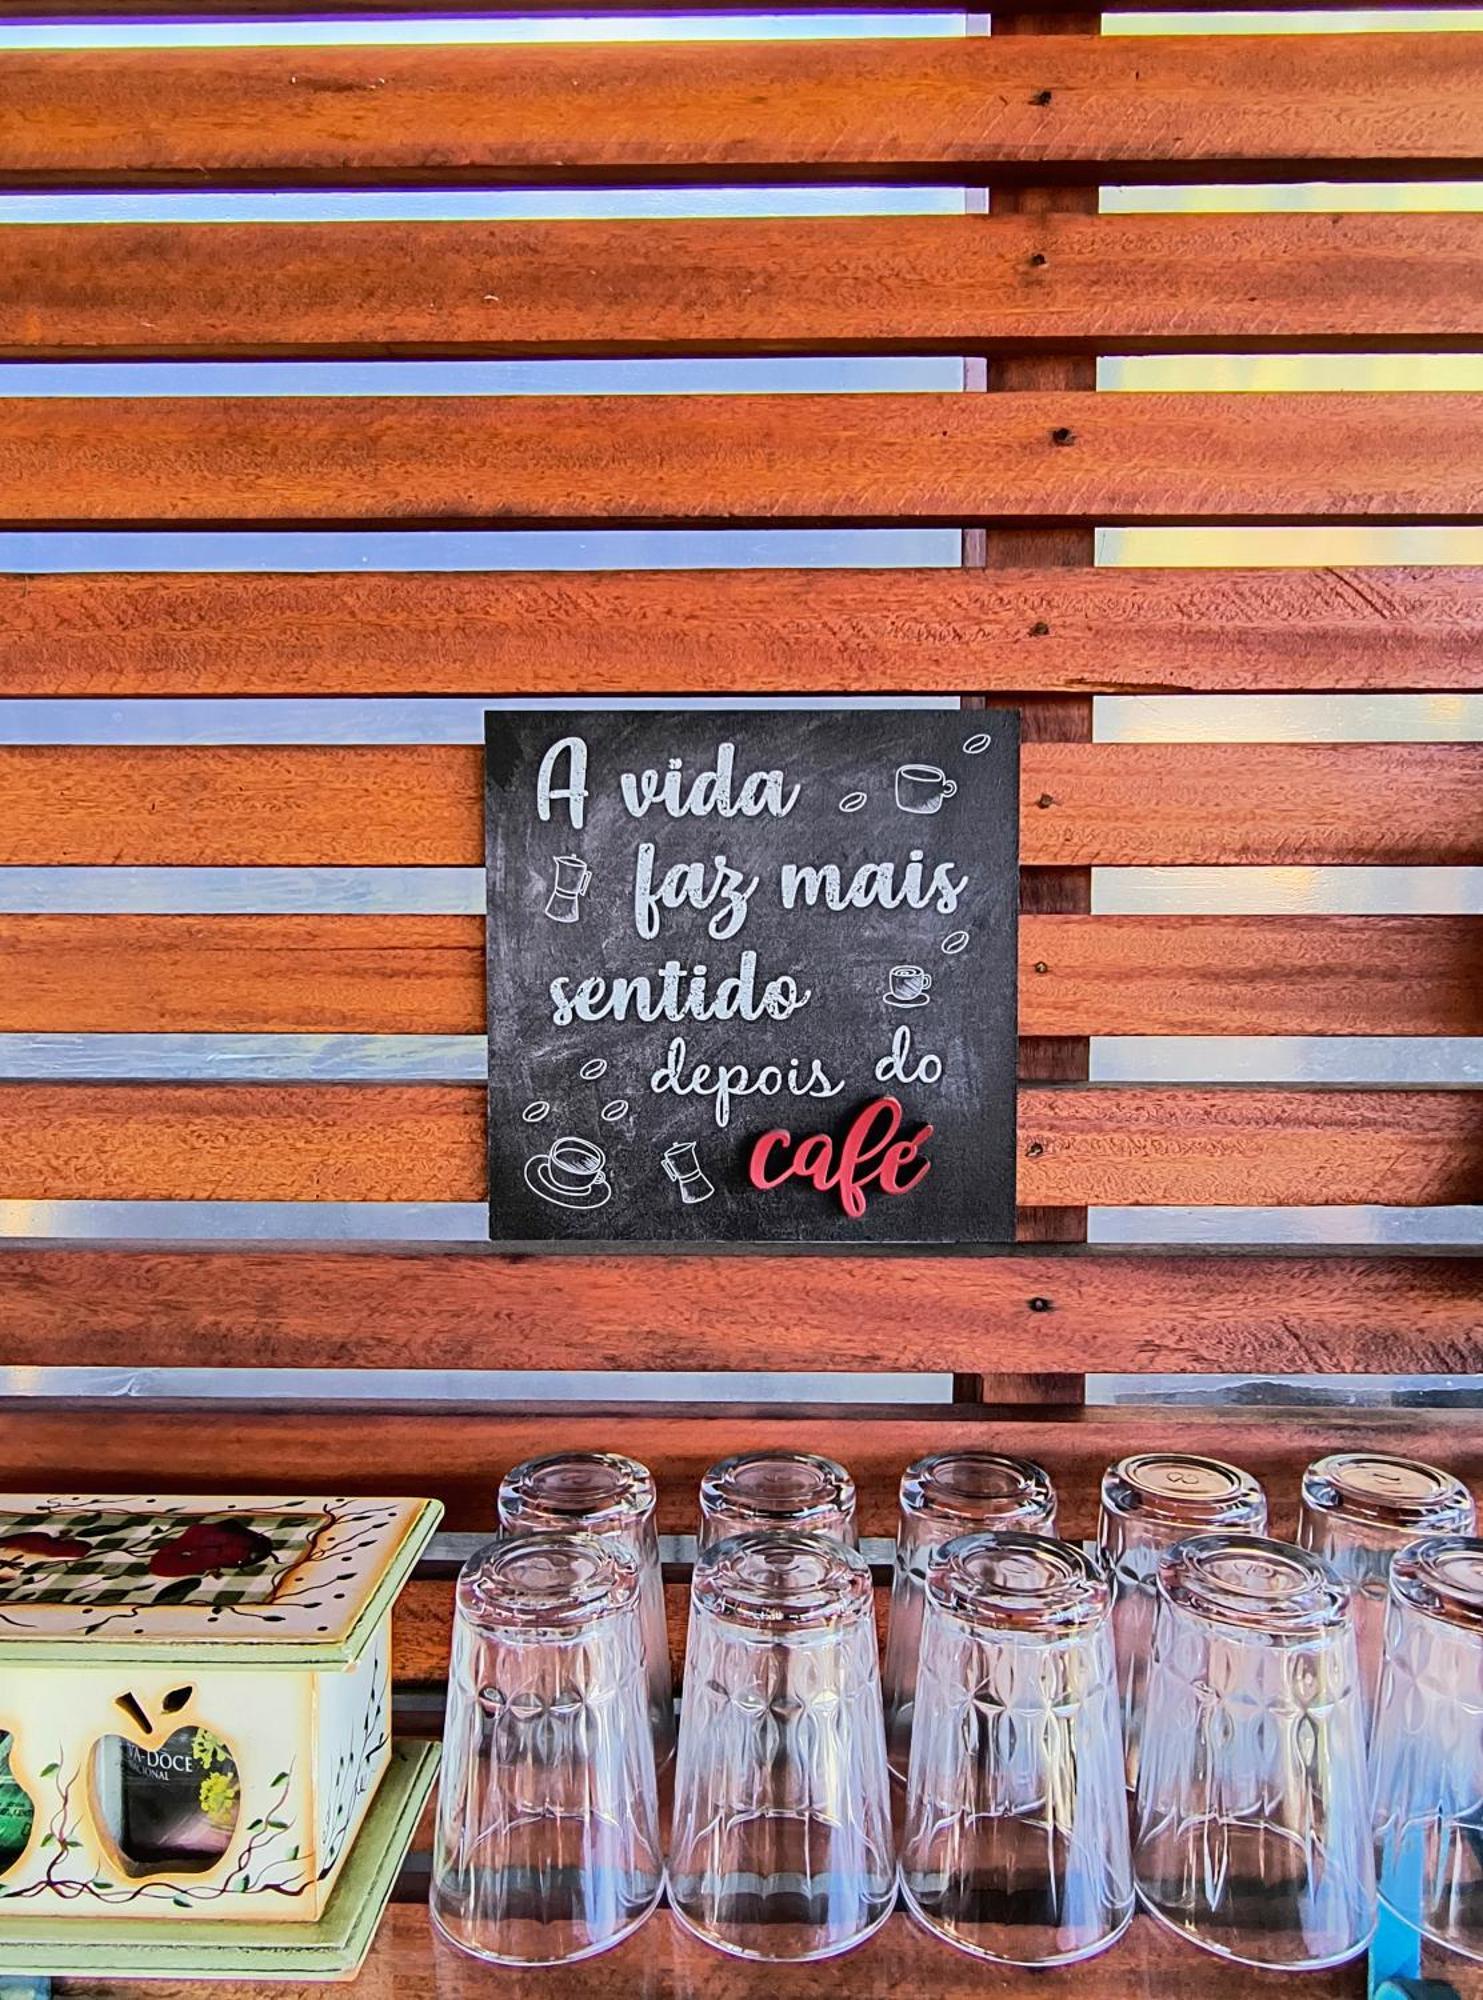 A vida
faz mais
sentido
depois do
café
VA-DOCE